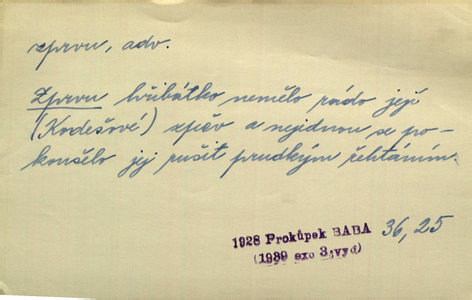 zprvu, adv.
Zprvu hříbátko nemělo rádo její
(Kodešové) zpěv a nejednou se po-
koušelo jej rušit prudkým řehtáním.
1928 Prokůpek BABA 36, 25
(1939 exc 3.vyd)